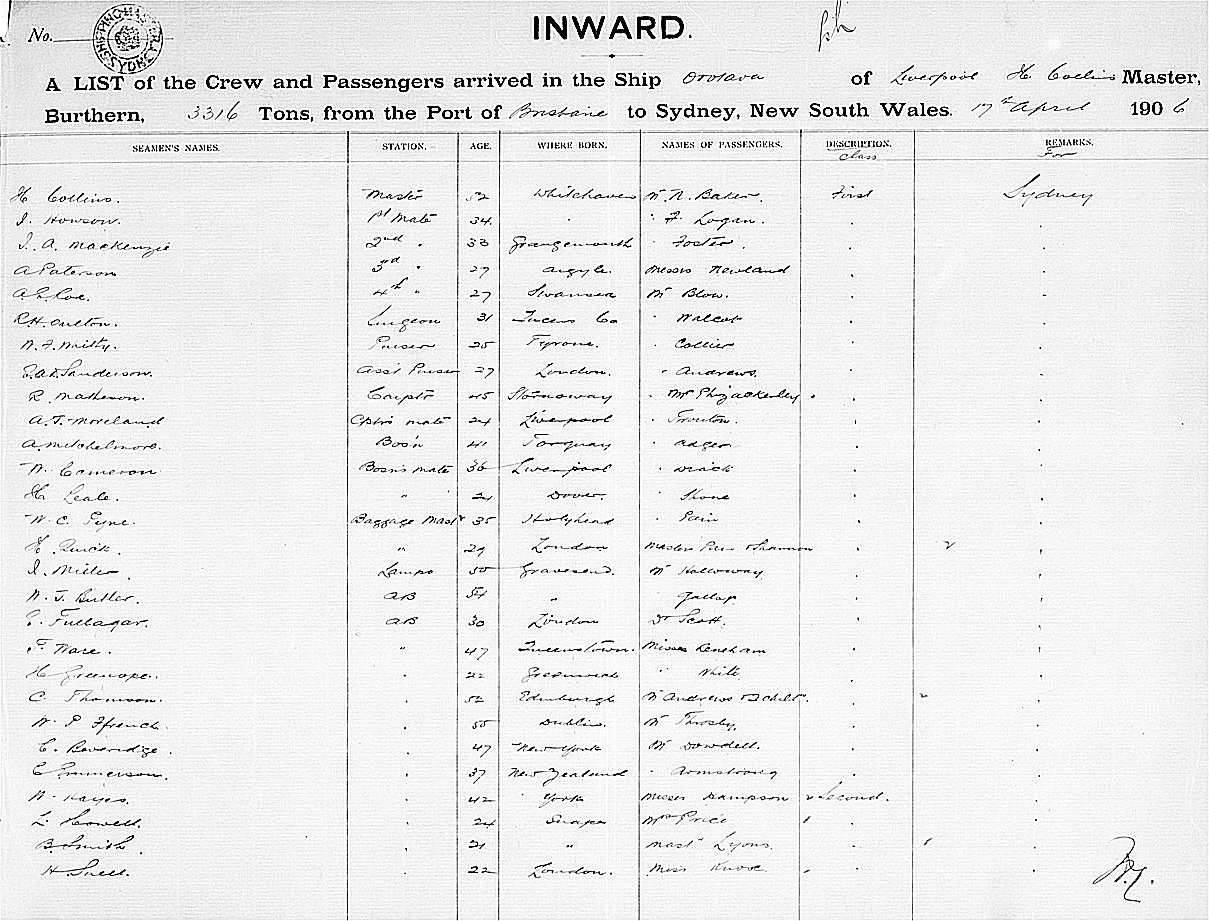 INWARD.
No.
SHIPPING MASTER SYDNEY
A LIST of the Crew and Passengers arrived in the Ship Orotava of Liverpool H Collins Master,
Burthern, 3316 Tons, from the Port of Brisbane to Sydney, New South Wales. 17th April 1906
SEAMEN'S NAMES. STATION. AGE. WHERE BORN. NAMES OF PASSENGERS. DESCRIPTION. REMARKS.
Class For
H Collins. Master 52 Whitehaven Mr R. Baker. First Sydney
J. Howson. 1st Mate 34. " " F. Logan. " "
J. A. Mackenzie 2nd " 33 Grangemouth " Foster. " "
A Paterson 3rd " 27 Argyle. Messrs Newland " "
A. E. Coe. 4th " 27 Swansea Mr Blow. " "
R. H. Oulton. Surgeon 31 Queens Co " Walcot " "
Purser 25 Tyrone. " Collier " "
Sanderson. Asst Purser 27 London. " Andrews. " "
R. Matheson. Carptr 45 Stornoway " Mrs Phizackerley " "
A. T. Moreland Cptrs mate 24 Liverpool " Trouton. " "
A. Mitchelmore. Bos'n 41 Torquay " Adger " "
W. Cameron Bosn's mate 36 Liverpool " " "
H Leale. " 21 Dover. " Shone " "
W. C. Pyne. Baggage Mastr 35 Holyhead " Pain " "
H Quick. " 29 London Masters Pain & Shannon " 2 "
J. Miller. Lamps 50 Gravesend. Mr Holloway " "
W. J. Butler. AB 54 " " Gallop " "
E. Fullagar. AB 30 London Dr Scott. " "
F. Ware. " 47 Queenstown. Misses Leneham " "
H Greenope. " 22 Greenwich " White " "
C. Thomson. " 52 Edinburgh Mr Andrews " 2 "
W. P Ffrench. " 55 Dublin. Mr Throsby. " "
C. Beveridge. " 47 New York Mr Dowdell. " "
E Emmerson. " 37 New Zealand " Armstrong " "
W. Hayes. " 42 York Misses Hampson 2 Second. "
L. Howell. " 24 Snape Mrs Price " "
B. Smith. " 21 " Mast Lyons. " 1 "
H Snell. " 22 London. Miss Knox " "